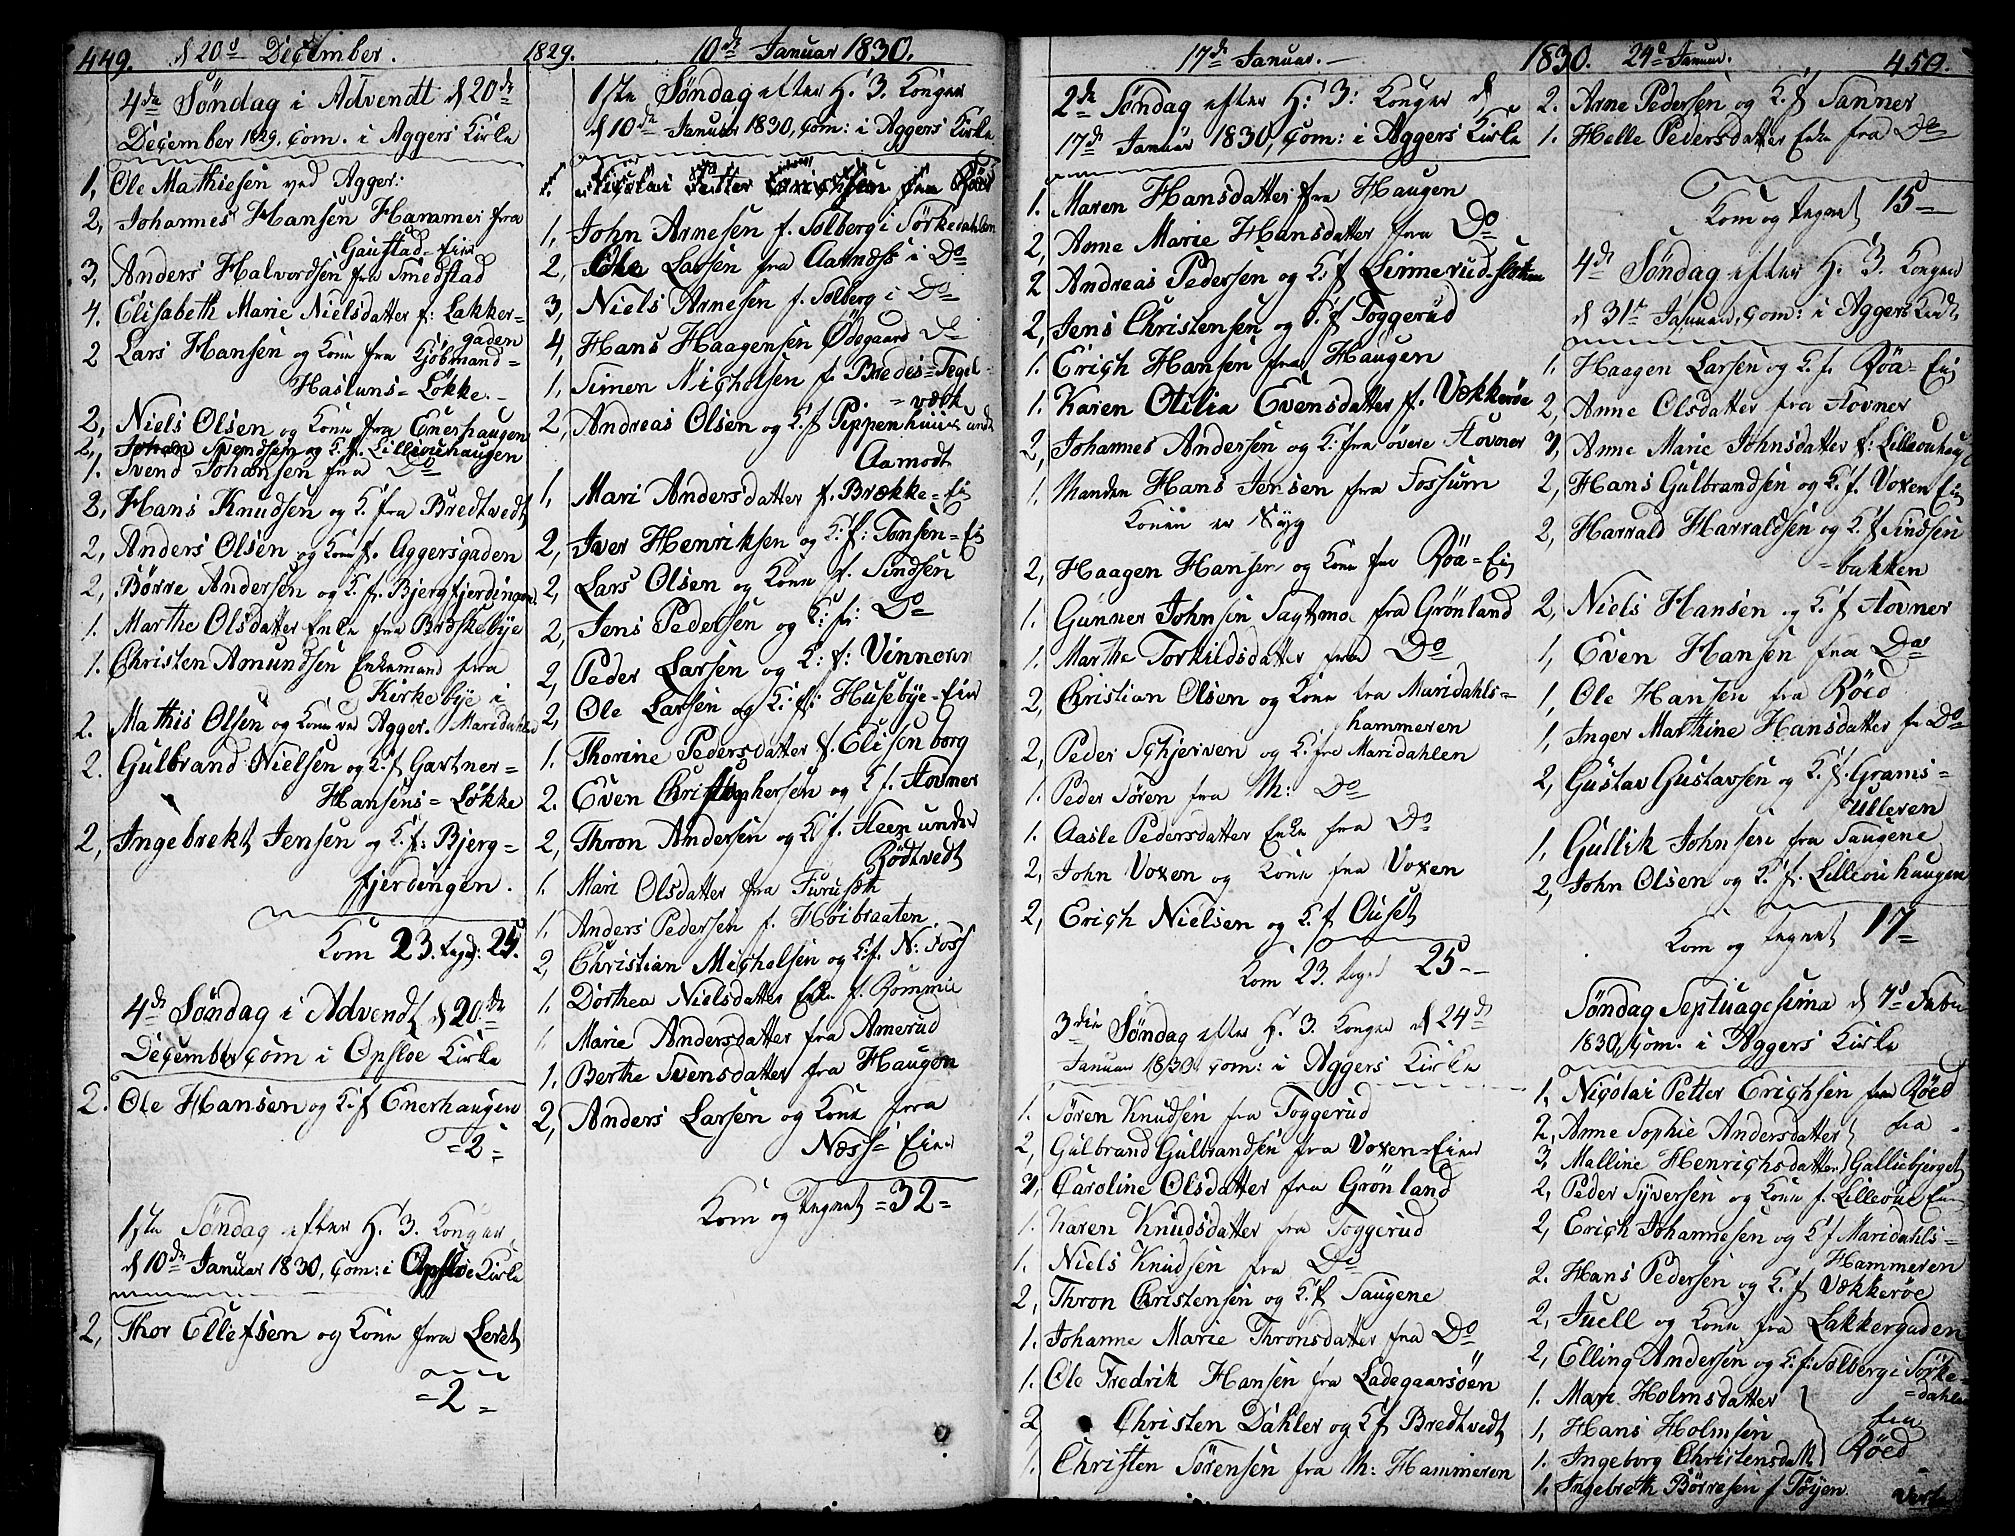 449. d 20d December. 1829. 10de Januar 1830.
4de Søndag i Advendt d 20de
December 1829. Com. i Aggers Kirke
1, Ole Mathiesen ved Agger.
2, Johannes Hansen Hammer fra
Gaustad-Eier
3, Anders Halvordsen fra Smedstad
4. Elisabeth Marie Nielsdatter f: Lakker-
gaden
2 Lars Hansen og Kone fra Kjøbmand-
Hasluns-Løkke.
2, Niels Olsen og Kone fra Enerhaugen
2, Johan Svendsen og K. f. Lilleouehaugen
1. Svend Johansen fra Do
2, Hans Knudsen og K. fra Bredtvedt
2, Anders Olsen og Kone f. Aggersgaden
2, Børre Andersen og K. fr. Bjergfjerdingen
1. Marthe Olsdatter Enke fra Brøskebye
1. Christen Amundsen Enkemand fra
Kirkebye i
Maridahlen
2. Mathis Olsen og Kone ved Agger.
2. Gulbrand Nielsen og K. f. Gartner-
Hansens-Løkke
2, Ingebrekt Jensen og K. f: Bjerg-
fjerdingen.
Kom 23. tegn: 25.
4de Søndag i Advendt d 20de
December com i Opsloe Kirke
2. Ole Hansen og K. f Enerhaugen
=2=
1ste Søndag efter H. 3. Konger
d 10de Januar 1830, Com: i Opsloe Kirke
2, Thor Ellefsen og Kone fra Leret
=2=
1ste Søndag efter H. 3. Konger
d 10de Januar 1830, Com: i Aggers Kirke
Nicolai Petter Erichsen fra Røed
1, John Arnesen f. Solberg i Sørkedahlen
2, Ole Larsen fra Aarnæss i Do
3, Niels Arnesen f. Solberg i Do
4, Hans Haagensen Ødegaard Do
1, Simen Nicholsen f. Bredes-Tegl-
værk
2, Andreas Olsen og K. f Pippenhuus under
Aamodt
1, Mari Andersdatter f. Brække-Ei
2, Iver Henriksen og K: f: Tonsen-Ei
2, Lars Olsen og Kone f. Sindsen
2, Jens Pedersen og K: f: Do
2, Peder Larsen og K: f: Vinneren
2, Ole Larsen og K: f: Husebye-Eier
1. Thorine Pedersdatter f. Elisenborg
2. Even Christophersen og K f. Hovner
2, Thron Andersen og K f. Steen under
Rødtvedt
1. Mari Olsdatter fra Furuseth
1. Anders Pedersen f. Høibraaten
2, Christian Micholsen og K. f. N: Foss
1. Dorthea Nielsdatter Enke f. Rommie
1. Marie Andersdatter fra Amerud
1. Berthe Svensdatter fra Haugen
2, Anders Larsen og Kone fra
Næss Eier
Kom og Tegnet =32=
17de Januar. 1830. 24d Januar. 450.
2de Søndag efter H: 3: Konger d
17de Januar 1830, Com: i Aggers Kirke
1. Maren Hansdatter fra Haugen
2, Anne Marie Hansdatter fra Do
2 Andreas Pedersen og K. f Linnerud-
2, Jens Christensen og K. f Toggerud
1. Erich Hansen fra Haugen
1. Karen Otilia Evensdatter f. Vækkerøe
2, Johannes Andersen og K: fra øvere Hovner
1. Manden Hans Jensen fra Fossum
Konen er Syg
2, Haagen Hansen og Kone fra Røa-Ei
1. Gunner Johnsen Sagtmo fra Grønland
1. Marthe Torkildsdatter fra Do
2, Christian Olsen og Kone fra Maridahls-
hammeren
2, Peder Schjerven og K. fra Maridahlen
1. Peder Søren fra M: Do
1. Aasle Pedersdatter Enke fra Do
2, John Voxen og Kone fra Voxen
2, Erich Nielsen og K. f Ouset
Kom 23. teg. 25--
3die Søndag efter H. 3. Konger d 24de
Januar 1830. Com: i Aggers Kirke
1. Søren Knudsen fra Toggerud
2, Gulbrand Gulbrandsen fra Voxen-Eier
Caroline Olsdatter fra Grønland
1. Karen Knudsdatter fra Toggerud
1. Niels Knudsen fra Do
2, Thron Christensen og K. f Saugene
1. Johanne Marie Thronsdatter fra Do
1. Ole Fredrik Hansen fra Ladegaarsøen
2 Christen Dahler og K f Bredtvedt
1. Christen Sørensen fra M: Hammeren
2. Arne Pedersen og K. f Sanner
1. Helle Pedersdatter Enke fra Do
Kom og tegnet 15-
4de Søndag efter H. 3. Konger
d 31te Januar, Com: i Aggers Kirke
1. Haagen Larsen og K. f. Røa-Ei
2, Anne Olsdatter fra Hovner
Anne Marie Johnsdatter f: Lilleouhaug
2, Hans Gulbrandsen og K. f. Voxen Ei
2, Harrald Harraldsen og K. f Sindsen
-bakken
2, Niels Hansen og K. f Hovner
1, Even Hansen fra Do
1, Ole Hansen fra Røed
1, Inger Marthine Hansdatter fr Do
2, Gustav Gustavsen og K. f. Grams-
Ulleren
1, Gullik Johnsen fra Saugene
2, John Olsen og K. f. Lilleouhaugen
Kom og tegnet 17=
Søndag Septuagesima d 7d Febr
1830, Com. i Aggers Kirke
1, Nicolai Petter Erichsen fra Røed
2, Anne Sophie Andersdatter fra
3, Malline Henrichsdatter Galliebjerget
2, Peder Syversen og Kone f. Lilleoue Eier
2, Erich Johannesen og K f Maridahls-
Hammeren
2. Hans Pedersen og K. f Vækkerøe
2, Juell og Kone fra Lakkergaden
2, Elling Andersen og K. f: Solberg i Sørke-
=dahlen
1. Mari Holmsdatter
1, Hans Holmsen fra
1. Ingeborg Christensda Røed
1. Ingebreth Børresen f Tøyen.